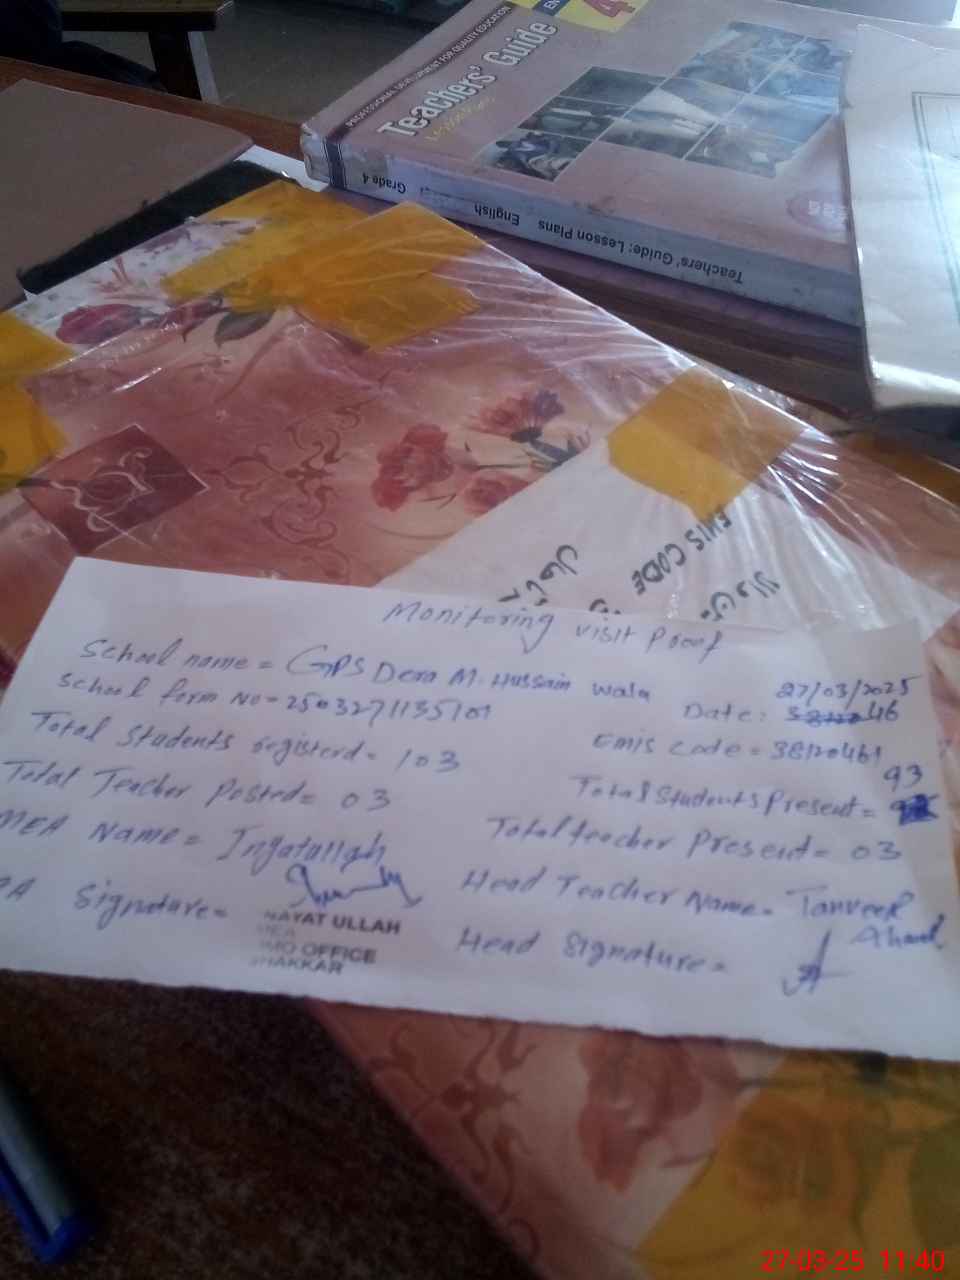 PROFESSIONAL DEVELOPMENT FOR QUALITY EDUCATION
Teachers' Guide
EN
4
Teachers' Guide: Lesson Plans English Grade 4
EMIS CODE
Monitoring visit proof
School name = GPS Dera M. Hussain wala
27/03/2025
School form No = 2503271135101
Date: 46
Total Students registerd = 103
Emis code = 38120461
93
Total Teacher Posted = 03
Total Students Present =
MEA Name = Inyatullah
Total teacher Present = 03
Signature =
Head Teacher Name = Tanveer Ahmad
NAYAT ULLAH
MEA
MO OFFICE
HAKKAR
Head Signature =
27-03-25 11:40